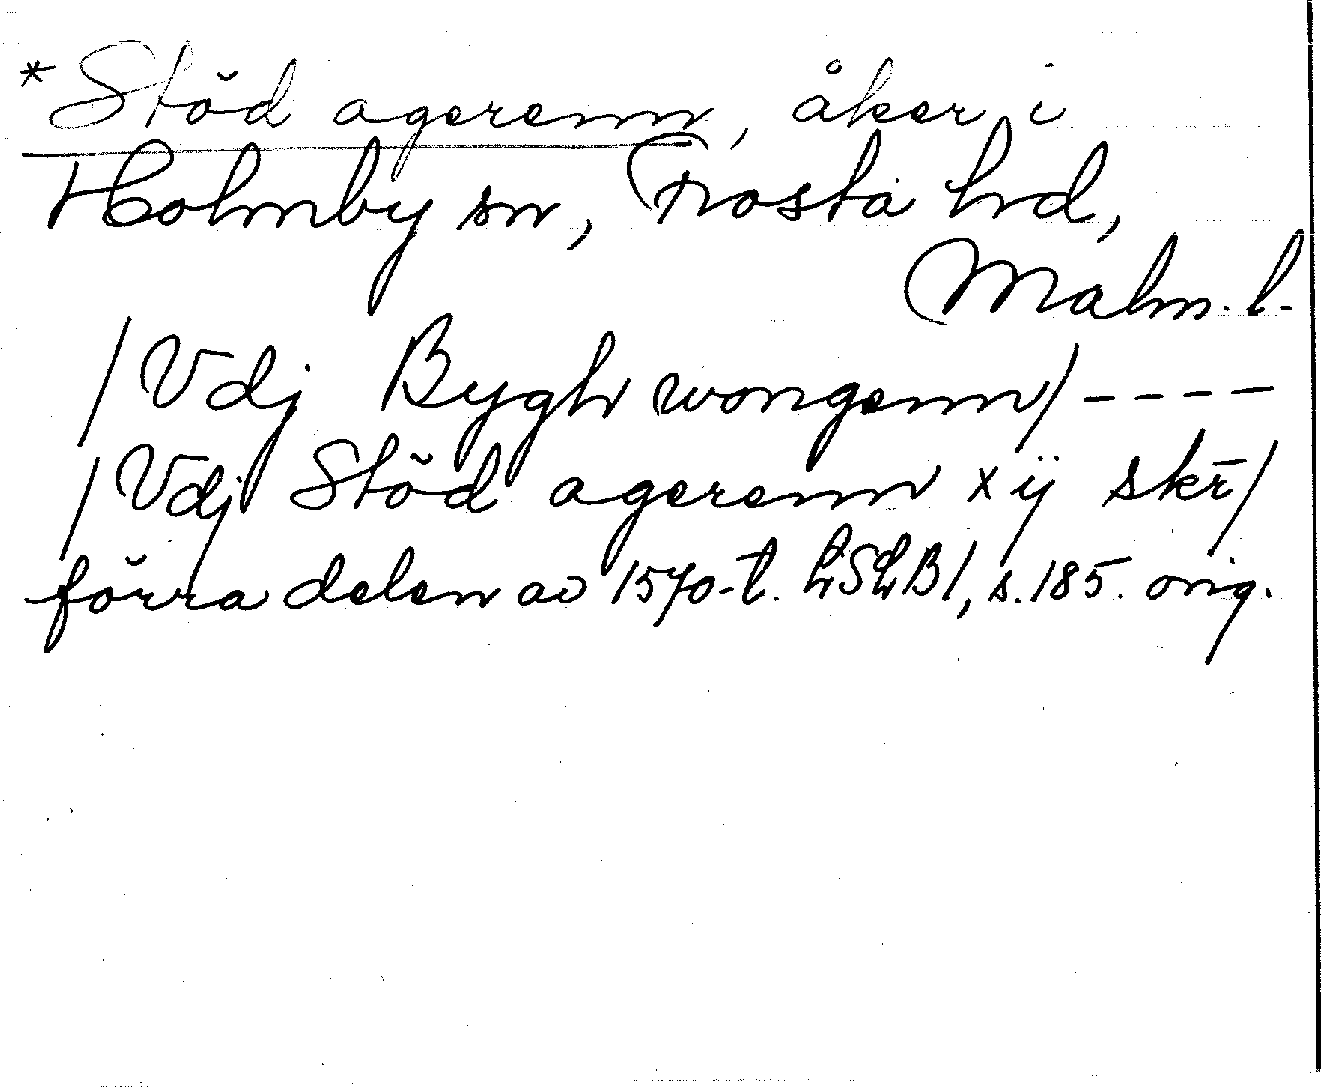 *Stöd agerenn, åker i
Holmby sn, Frosta hd,
Malm. l.
/Vdj Bygh wongenn/----
/Vdj Stöd agerenn xij skr̄/
förra delen av 1570-t. LSLB1, s.185. orig.